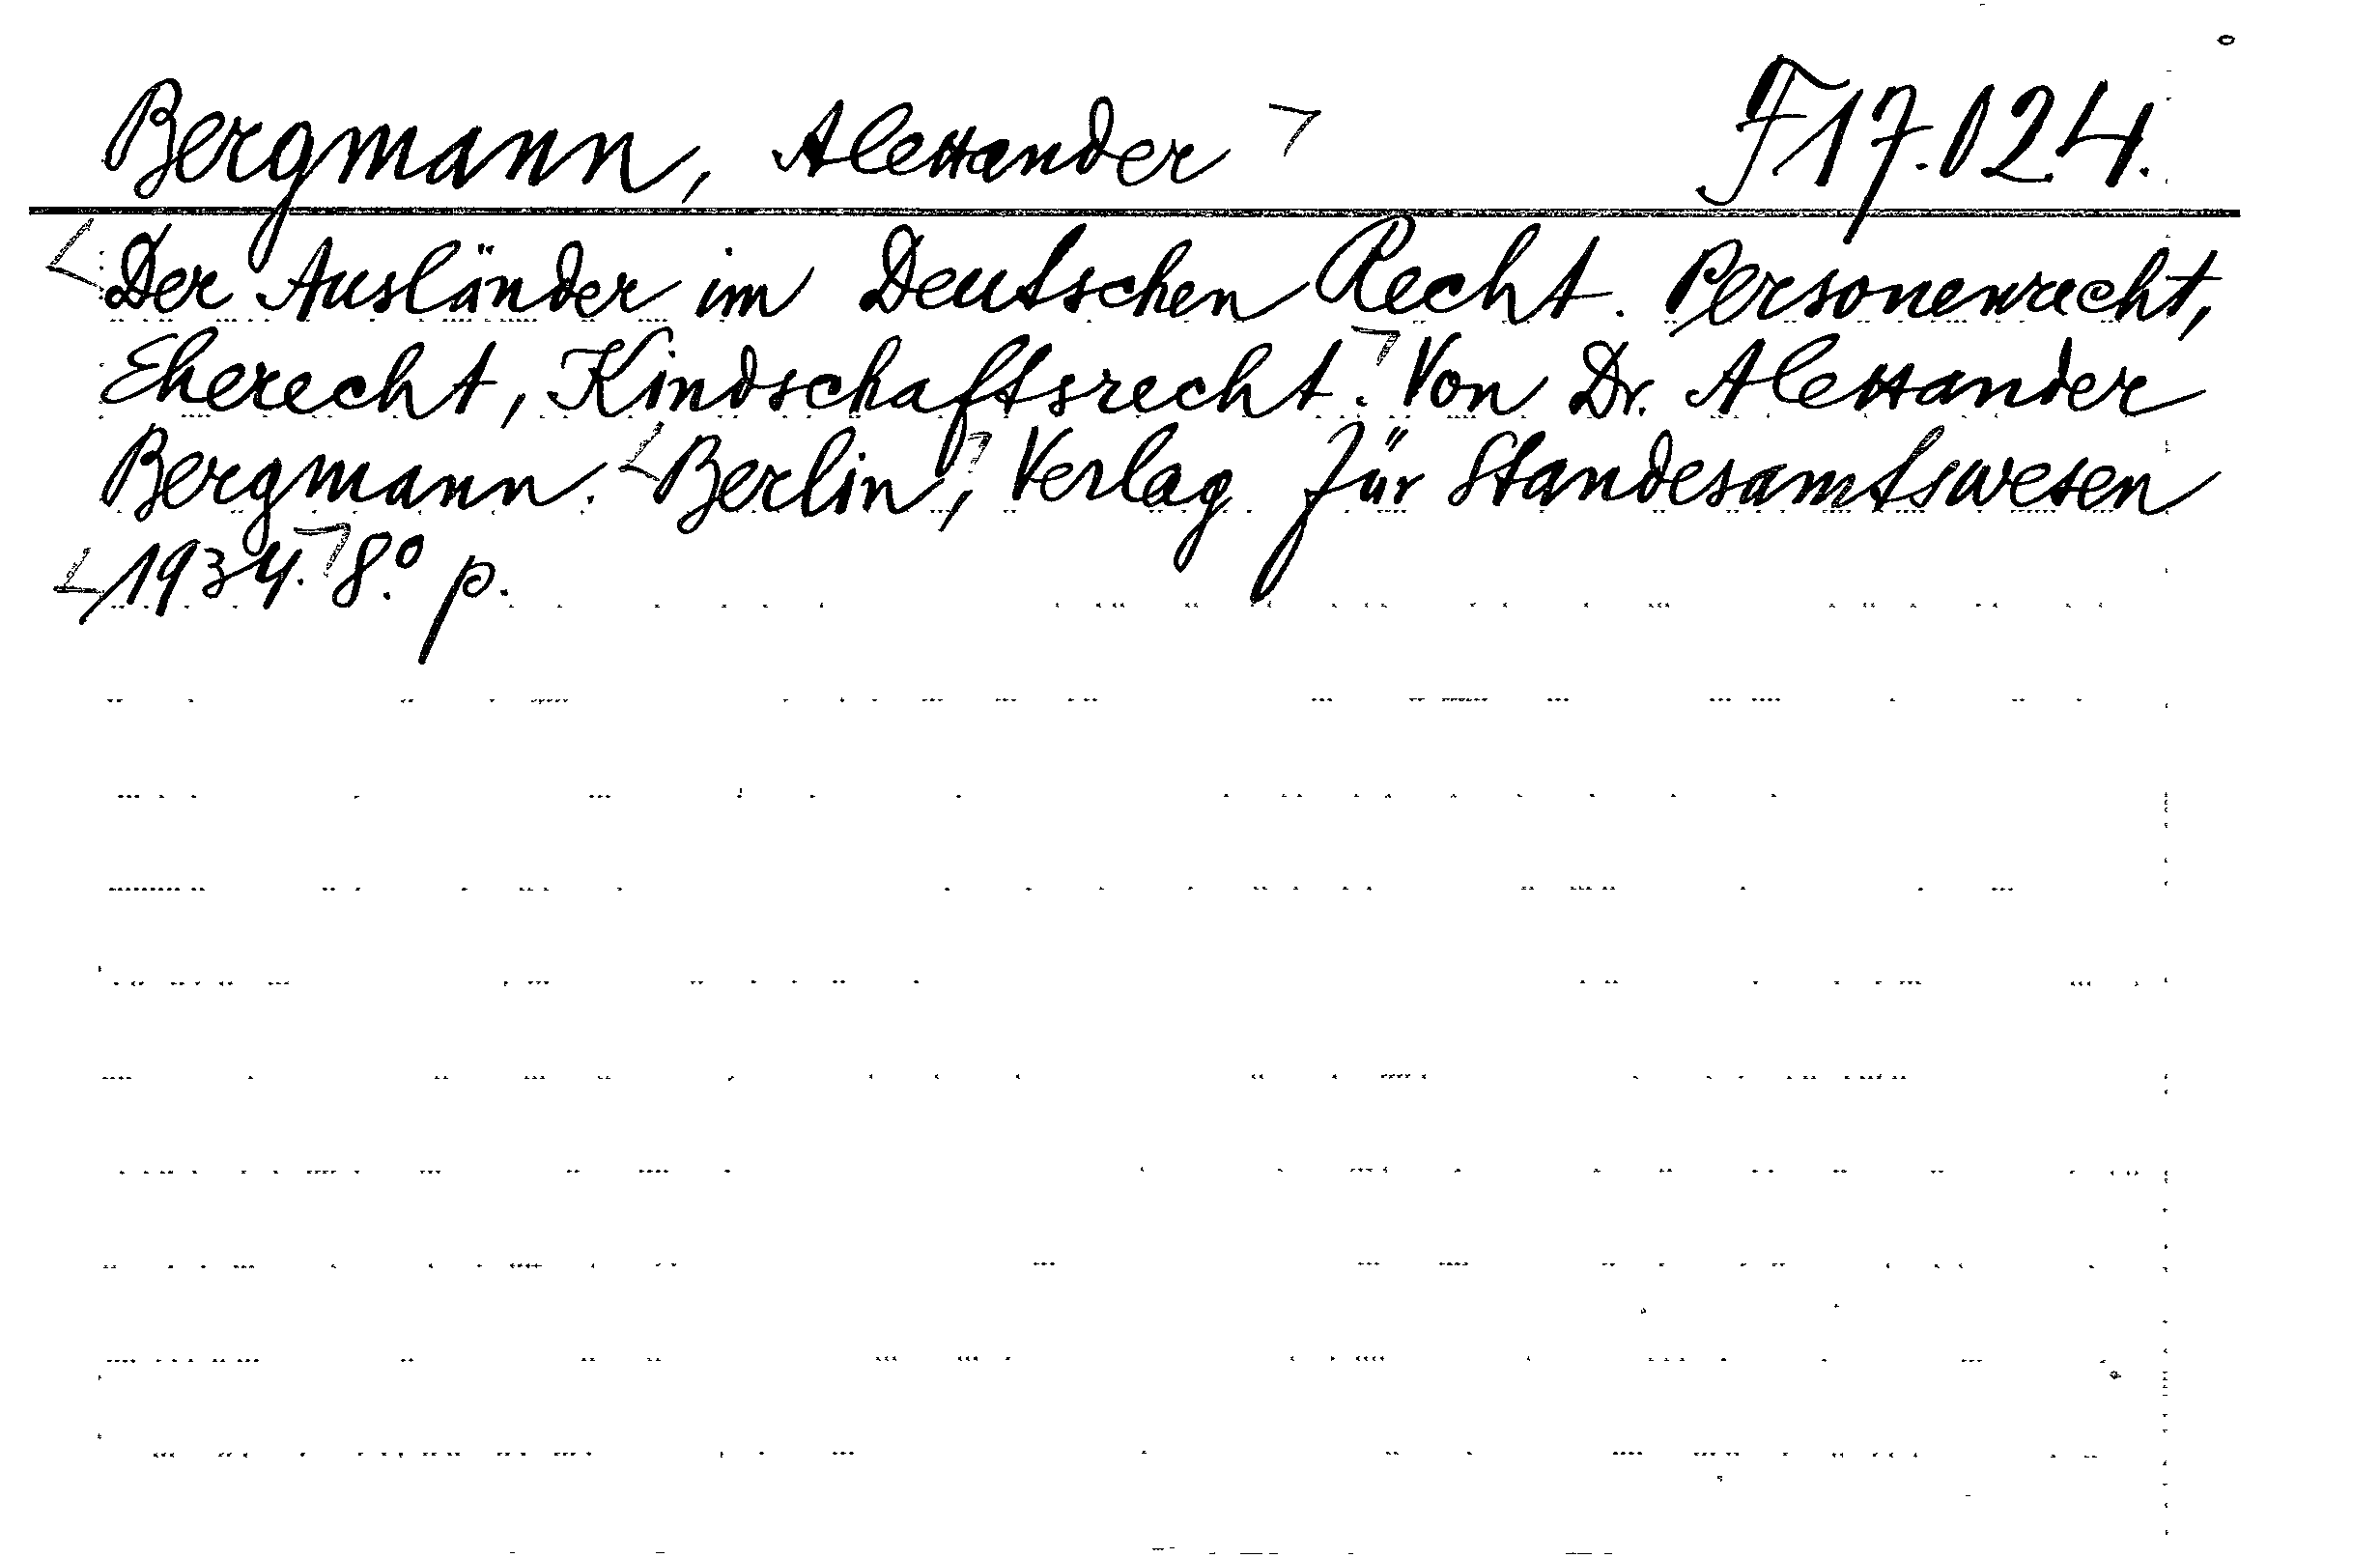 Bergmann, Alexander F17.024.
Der Ausländer im Deutschen Recht. Personenrecht,
Eherecht, Kindschaftsrecht. Von Dr. Alexander
Bergmann. Berlin, Verlag für Standesamtswesen
1934. 8.° p.